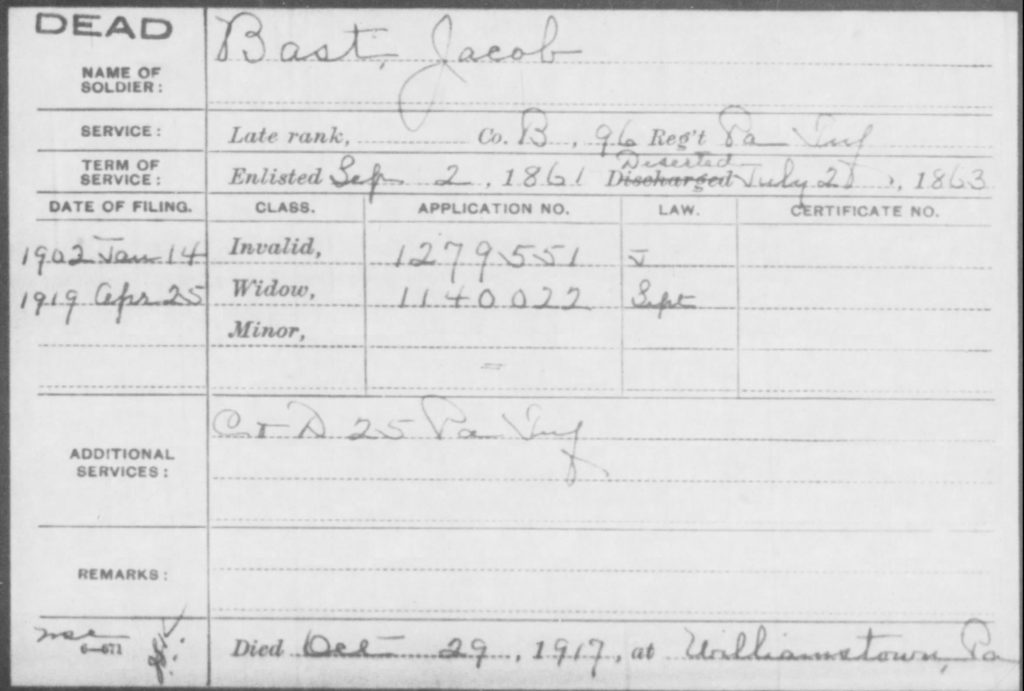 DEAD
NAME OF SOLDIER: Bast, Jacob
SERVICE: Late rank, Co. B, 96 Reg't Pa Inf
TERM OF SERVICE: Enlisted Sep 2, 1861 Discharged Deserted July, 1863
DATE OF FILING. CLASS. APPLICATION NO. LAW. CERTIFICATE NO.
1902 Jan 14 Invalid, 1279551 J
1919 Apr 25 Widow, 1140022 Sept
Minor,
=
ADDITIONAL SERVICES: D 25 Pa Inf
REMARKS:
6—671
Died Oct 29, 1917, at Williamstown, Pa